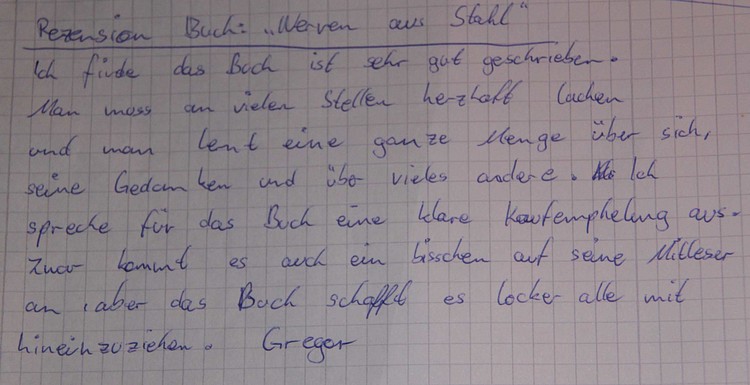 Rezension Buch: „Nerven aus Stahl“
Ich finde das Buch ist sehr gut geschrieben.
Man muss an vielen Stellen herzhaft lachen
und man lent eine ganze Menge über sich,
seine Gedanken und über vieles andere. Ich
spreche für das Buch eine klare Kaufemphelung aus.
Zwar kommt es auch ein bisschen auf seine Mitleser
an, aber das Buch schafft es locker alle mit
hineinzuziehen. Gregor